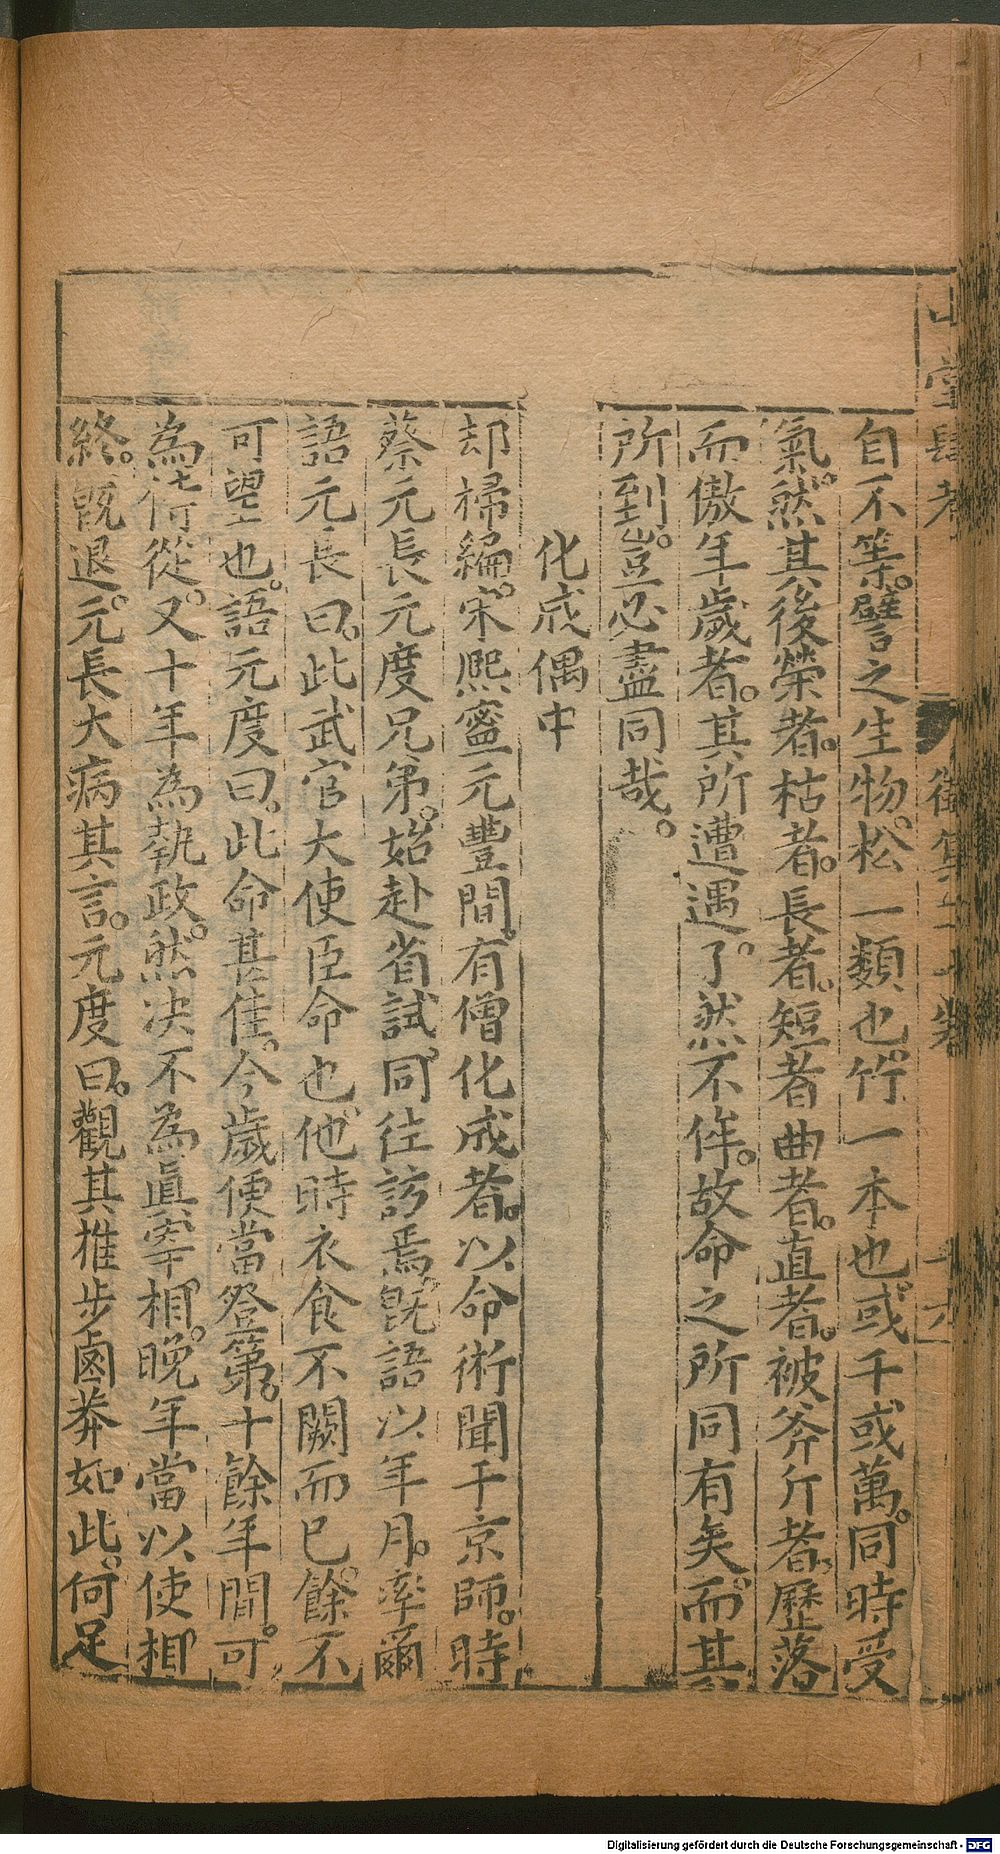 山堂肆考
術算二十卷
十六
自不等。譬之生物。松一類也。竹一本也。或千或萬。同時受
氣。然其後榮者。枯者。長者。短者曲者。直者。被斧斤者。歷落
而傲年歲者。其所遭遇。了然不侔。故命之所同有矣。而其
所到。豈必盡同哉。
化成偶中
却掃編。宋熙寧元豐間。有僧化成者。以命術聞于京師。時
蔡元長元度兄弟。始赴省試。同往訪焉。旣語以年月。率爾
語元長曰。此武官大使臣命也。他時衣食不闕而已。餘不
可望也。語元度曰。此命甚佳。今歲便當登第。十餘年間。可
為侍從。又十年為執政。然決不為眞宰相。晚年當以使相
終。旣退。元長大病其言。元度曰。觀其推步鹵莽如此。何足
Digitalisierung gefördert durch die Deutsche Forschungsgemeinschaft - DFG